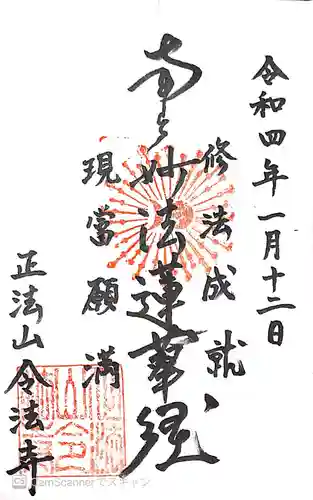 令和四年一月十二日
修法成就
南無妙法蓮華経
現當願満
正法山令法寺
CS CamScannerでスキャン